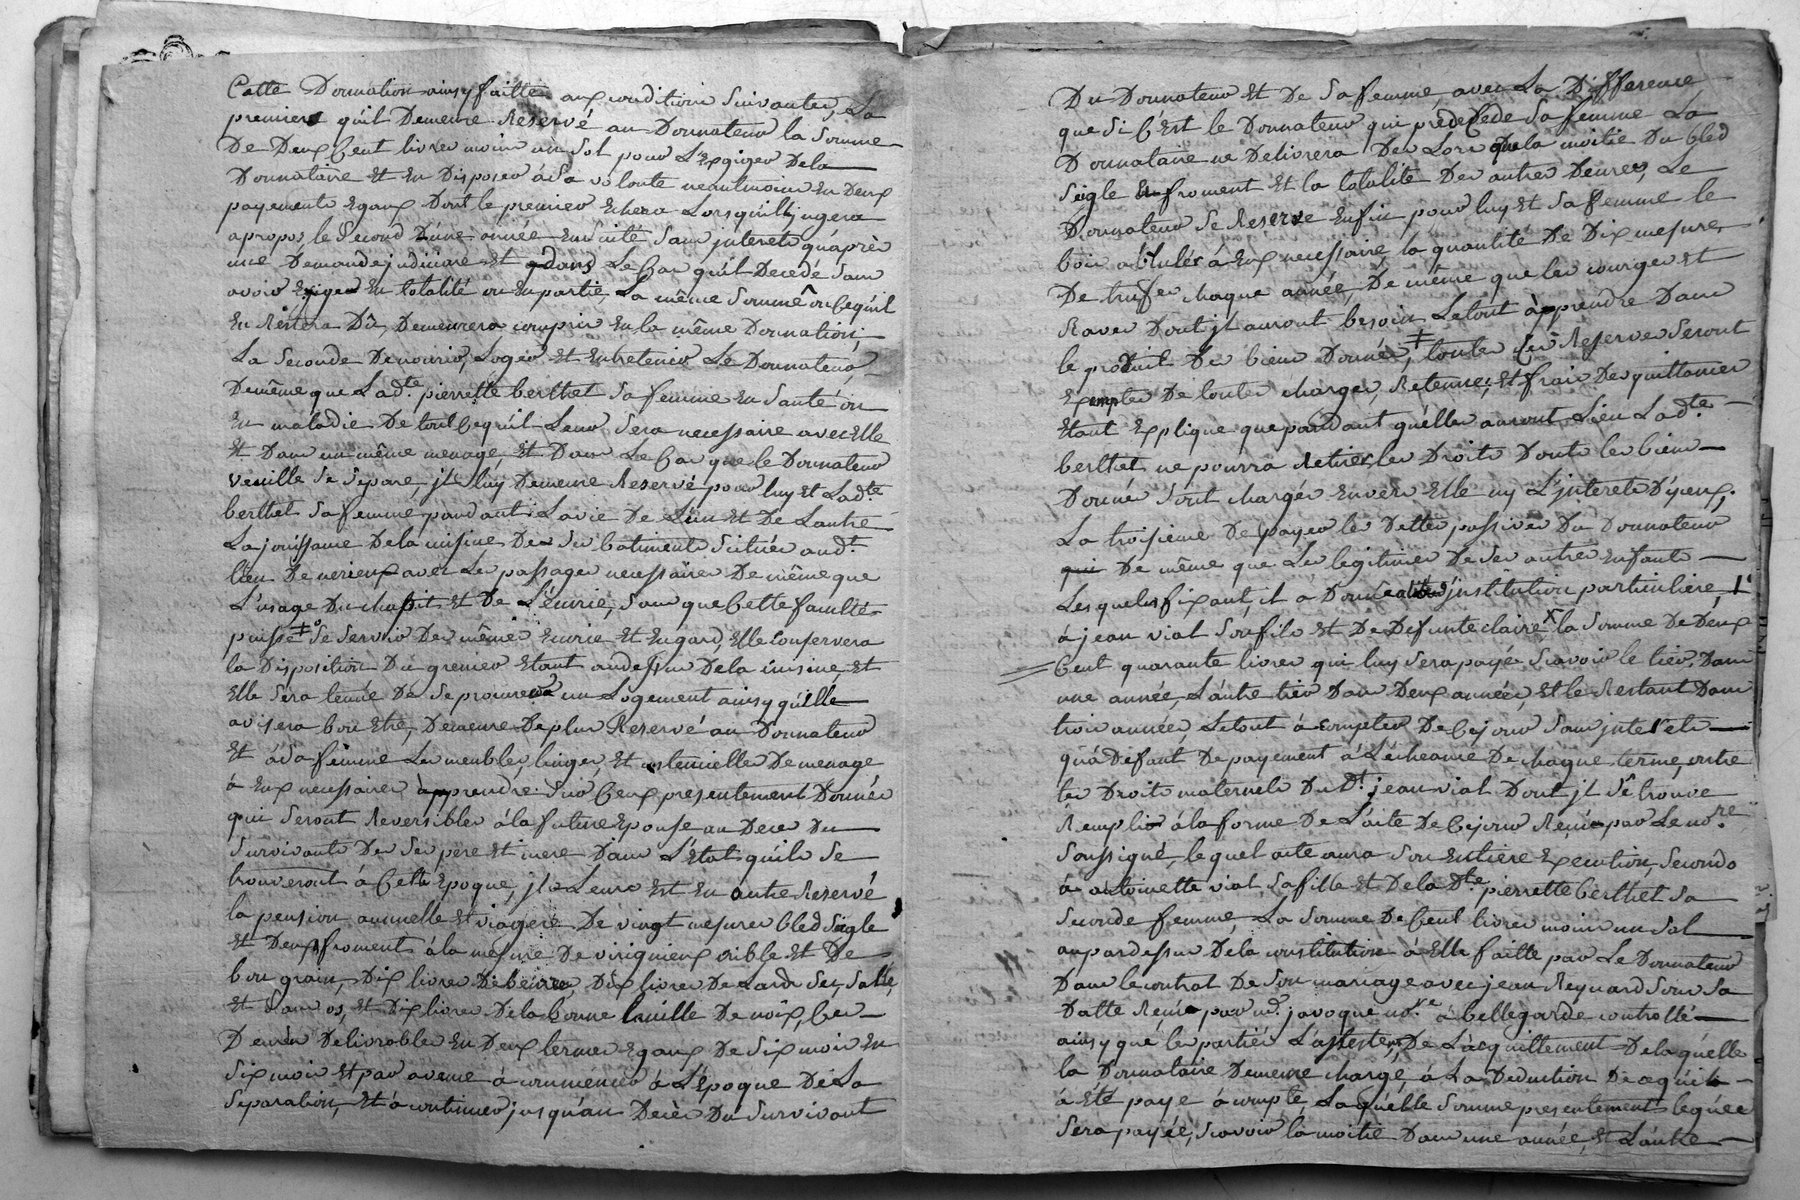 Cette Donnation ainsy faitte aux conditions suivantes, La
premiere quil Demeure Reservé au Donnateur la somme
De Deux Cent livres moins un sol pour L'Exgiger Dela
Donnataire Et En Disposer àsa volonté neantmoins En Deux
payements Egaux Dont le premier Echera Lorsquill jugera
apropos, le Second D'une année Ensuité sans jnterets qu'après
une Demande judiciaire Et dans Le Cas qu'il Decedé sans
avoir Exiger En totalité ou En partie La même Sommê ou Cequil
En Réstera Dû, Demeurera compris En la même Donnation;
La Seconde Denourir, Loger Et Entretenir Le Donnateur,
Demême que Ladte pierrette berthet Sa femme En Santé ou
En maladie De tout Cequil Leur Sera necessaire avec Elle
Et Dans un même menage, Et Dans Le Cas que le Donnateur
veuille Se Separe, jl luy Demeure Reservé pour luy Et Ladte
berthet Sa femme pandant La vie De Lun Et De Lautre
La jouissance Dela cuisine De Ses batiments Situés audt
lieu De nerieux avec Les passages necessaires De même que
L'usage Du chapit Et De L'Écurie, Sans que Cette faculté
puisse Se Servir De même Ecurie Et Engard, Elle Conservera
la Disposition Du grenier Etant audessus Dela cuisine, Et
Elle Séra tenüe De Se procurer un Logement ainsy qu'elle
avisera bon Etre, Demeure Deplus Reservé au Donnateur
Et àsa femme Les meubles, linges, Et ustencilles De menage
à Eux necessaires àpprendre Sur Ceux presentement Donnés
qui Seront Reversibles àla future Epouse au Deces Du
Survivants De Ses pere Et mere Dans L'Etat qu'ils Se
trouveront à Cette Epoque, jl Leurs Est En outre Reservé
la pension annuelle Et viagere De vingt mesures bled Seigle
Et Deux froment àla mesure De virignieux crible Et De
bon grain, Dix livres De beurre, Dix livres De Lard Sec, Salé,
Et Sans os, Et Dix livres Dela bonne huille De noix, Ces
Denrés Delivrables En Deux termes Egaux De Six mois En
Six mois Et par avance à commencer à L'Epoque De La
Separation, Et à continuer jusqu'au Decès Du Survivant
Du Donnateur Et De Sa femme, avec La Difference
que Si C'Est le Donnateur qui predeCede Sa femme La
Donnataire ne Delivrera Des Lors que la moitie Du bled
Seigle froment Et la totalité Des autres Denrées, Le
Donnateur Se Reserve Enfin pour luy Et Sa femme le
bois àbrulér à Eux necessaire, la quantité De Dix mesures
De trufes chaque année, De même que les courges Et
Raves Dont jl auront besoin Letout àpprendre Dans
le produit Des biens Donnés, toutes Ces Reserves Seront
Exemptes De toutes charges, Retenues, Et frais Des quittances
Etant Explique que pandant qu'elles auront Lieu Ladte
berthet ne pourra Retirer les Droits Donts les biens
Donnés Sont chargés Envers Elle ny L'jnterets D'jceux,
La troisieme De payer les Dettes passives Du Donnateur
qui De même que Les legitimes De Ses autres Enfants
Lesquels fixant, il a Donné jnstitution particuliere, 1°
à jean vial Son fils Et De Defunte claire la Somme De Deux
Cent quarante livres qui luy Sera payé Scavoir le tiers Dans
une année, L'autre tiers Dans Deux années, Et le Restant Dans
trois années Letout à compter De Cejour Sans jnterets
qu'à Defaut De payement à L'écheance De chaque terme, outre
les Droits maternels Dudt jean vial Dont jl Sé trouve
Remplis àla forme De L'acte De Cejour Reçu par Le nore
Soussigné, lequel acte aura Son Entiere Execution, Secondo
à antoinette vial, Safille Et De la Dte pierrette berthet Sa
Seconde femme, La Somme De Cent livres moins un Sol
aupardessus Dela constitution à Elle faitte par Le Donnateur
Dans le contrat De Son mariage avec jean Reynard Sous Sa
Datte Reçu par md javoque nore à bellegarde controllé
ainsy que les partiés L'attestent De L'acquittement Dela quelle
la Donnataire Demeure chargé, à La Deduction De cequi
à Eté payé à compte, La quelle Somme presentement leguée
Sera payée, Scavoir la moitié Dans une année, Et L'autre